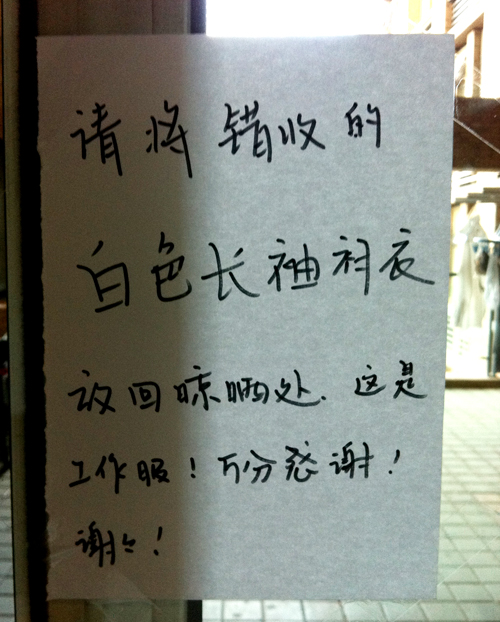 请将错收的
白色长袖衬衣
放回晾晒处.这是
工作服！万分感谢！
谢谢！